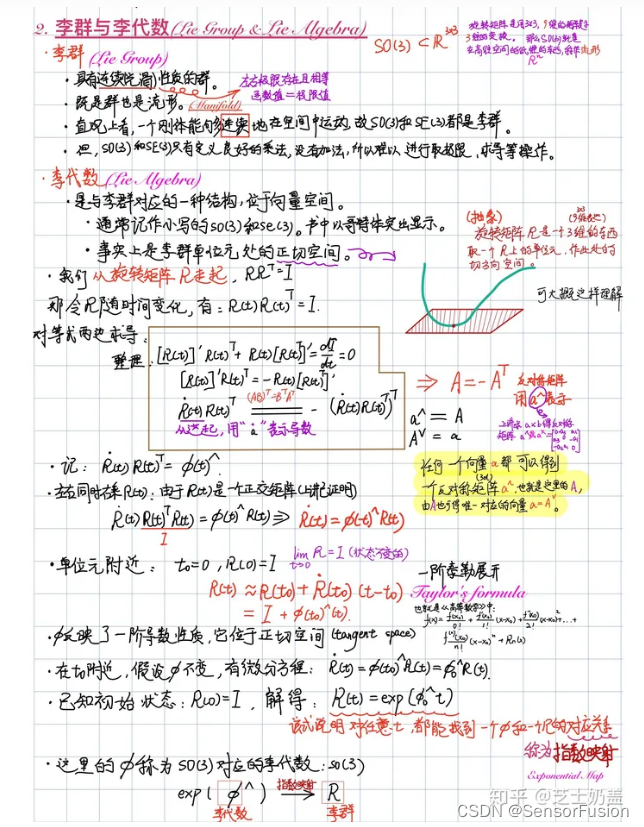 2. 李群与李代数(Lie Group & Lie Algebra)
SO(3) ⊂ R^{3×3}
旋转矩阵是用3×3, 9维的矩阵于
3维的变换。那么SO(3)就是
R^n
· 李群 (Lie Group)
· 具有连续(光滑)性质的群。
左右极限存在且相等
函数值=极限值
· 既是群也是流形。(Manifold)
· 直观上看,一个刚体能够连续地在空间中运动,故SO(3)和SE(3)都是李群。
· 但,SO(3)和SE(3)只有定义良好的乘法,没有加法,所以难以进行取极限、求导等操作。
· 李代数 (Lie Algebra)
· 是与李群对应的一种结构,位于向量空间。
· 通常记作小写的so(3)和se(3)。书中以哥特体突出显示。
· 事实上是李群单位元处的正切空间。
(抽象)
旋转矩阵R是一个3维的东西
取一个R上的单位元,作此处的
切方向空间。
可大概这样理解
· 我们从旋转矩阵R走起,RR^T=I
那令R随时间变化,有:R(t)R(t)^T=I.
对等式两边求导:
[R(t)]'R(t)^T+R(t)[R(t)]'=dI/dt=0
整理:
[R(t)]'R(t)^T=-R(t)[R(t)^T]'
(AB)^T=B^TA^T
Ṙ(t)R(t)^T = -(Ṙ(t)R(t)^T)^T
从这起,用"ȧ"表示导数
⇒ A=-A^T 反对称矩阵
用a^表示
a^ = A
A^∨ = a
· 记:Ṙ(t)R(t)^T=φ(t)^.
任何一个向量a都可以得到
一个反对称矩阵a^,也就是这里的A,
由A也可得唯一对应的向量a=A^∨。
· 左右同时右乘R(t):由于R(t)是一个正交矩阵(上起证明)
Ṙ(t)R(t)^TR(t)=φ(t)^R(t)⇒ Ṙ(t)=φ(t)^R(t)
I
· 单位元附近: t₀=0, R(0)=I
lim R=I (状态不变的)
t→0
R(t)≈R(t₀)+Ṙ(t₀)(t-t₀)
=I+φ(t₀)^(t).
一阶泰勒展开
Taylor's formula
也就是《高等数学》中:
f(x)=f(x₀)/0!+f'(x₀)/1!(x-x₀)+f''(x₀)/2!(x-x₀)²+...+
f^(n)(x₀)/n!(x-x₀)^n+Rn(x)
· φ反映了一阶导数性质,它位于正切空间(tangent space)
· 在t₀附近,假设φ不变,有微分方程:Ṙ(t)=φ(t₀)^R(t)=φ₀^R(t).
· 已知初始状态:R(0)=I,解得:R(t)=exp(φ₀^t)
该式说明对任意t,都能找到一个φ和一个R的对应关系
称为指数映射
Exponential Map
· 这里的φ称为SO(3)对应的李代数:so(3)
exp(φ^) 指数映射→ R
李代数 李群
知乎 @芝士奶盖
CSDN @SensorFusion